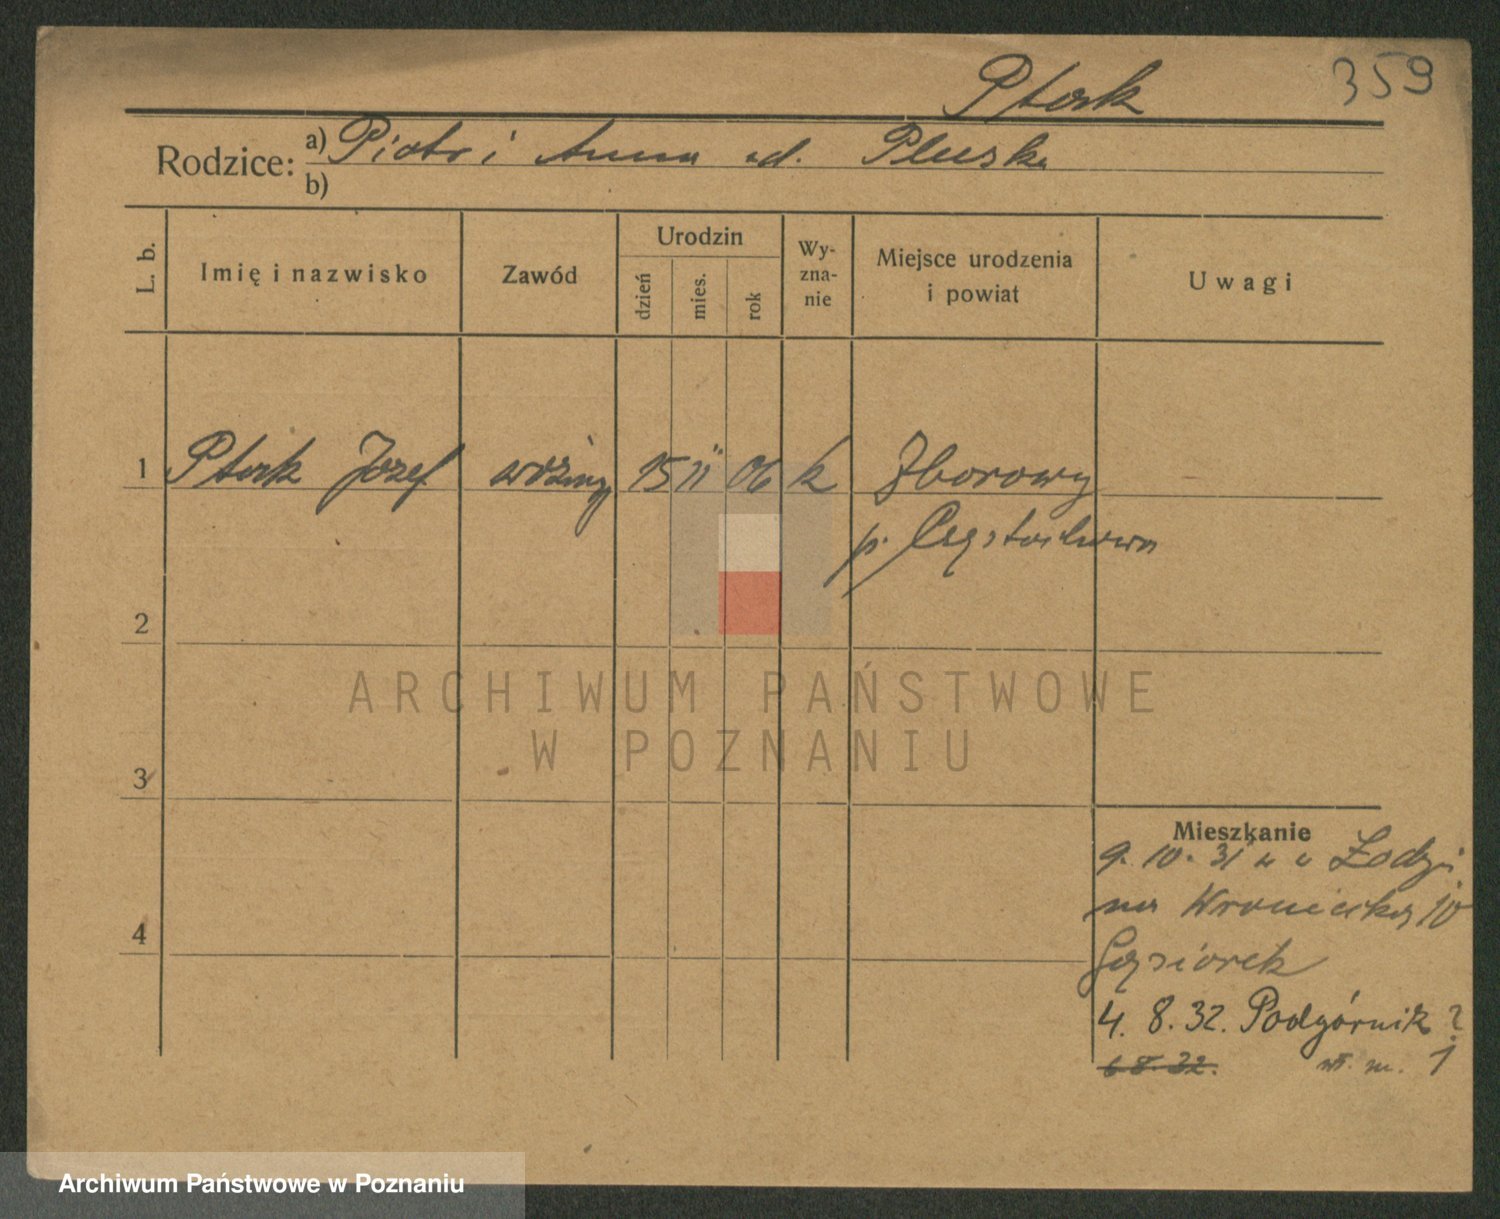 Ptak
359
Rodzice: a) Piotr i Anna ud. Pluska
b)
L. b.
Imię i nazwisko
Zawód
Urodzin
dzień
mies.
rok
Wy-
zna-
nie
Miejsce urodzenia
i powiat
Uwagi
1 Ptak Józef woźny 15 11 06 k Zborowy
p. Częstochowa
2
3
4
ARCHIWUM PAŃSTWOWE
W POZNANIU
Mieszkanie
9. 10. 31 Łodzi
na Wroniecka 10
Gąsiorek
4. 8. 32. Podgórnik ?
6 8. 32. wł. m. 1
Archiwum Państwowe w Poznaniu